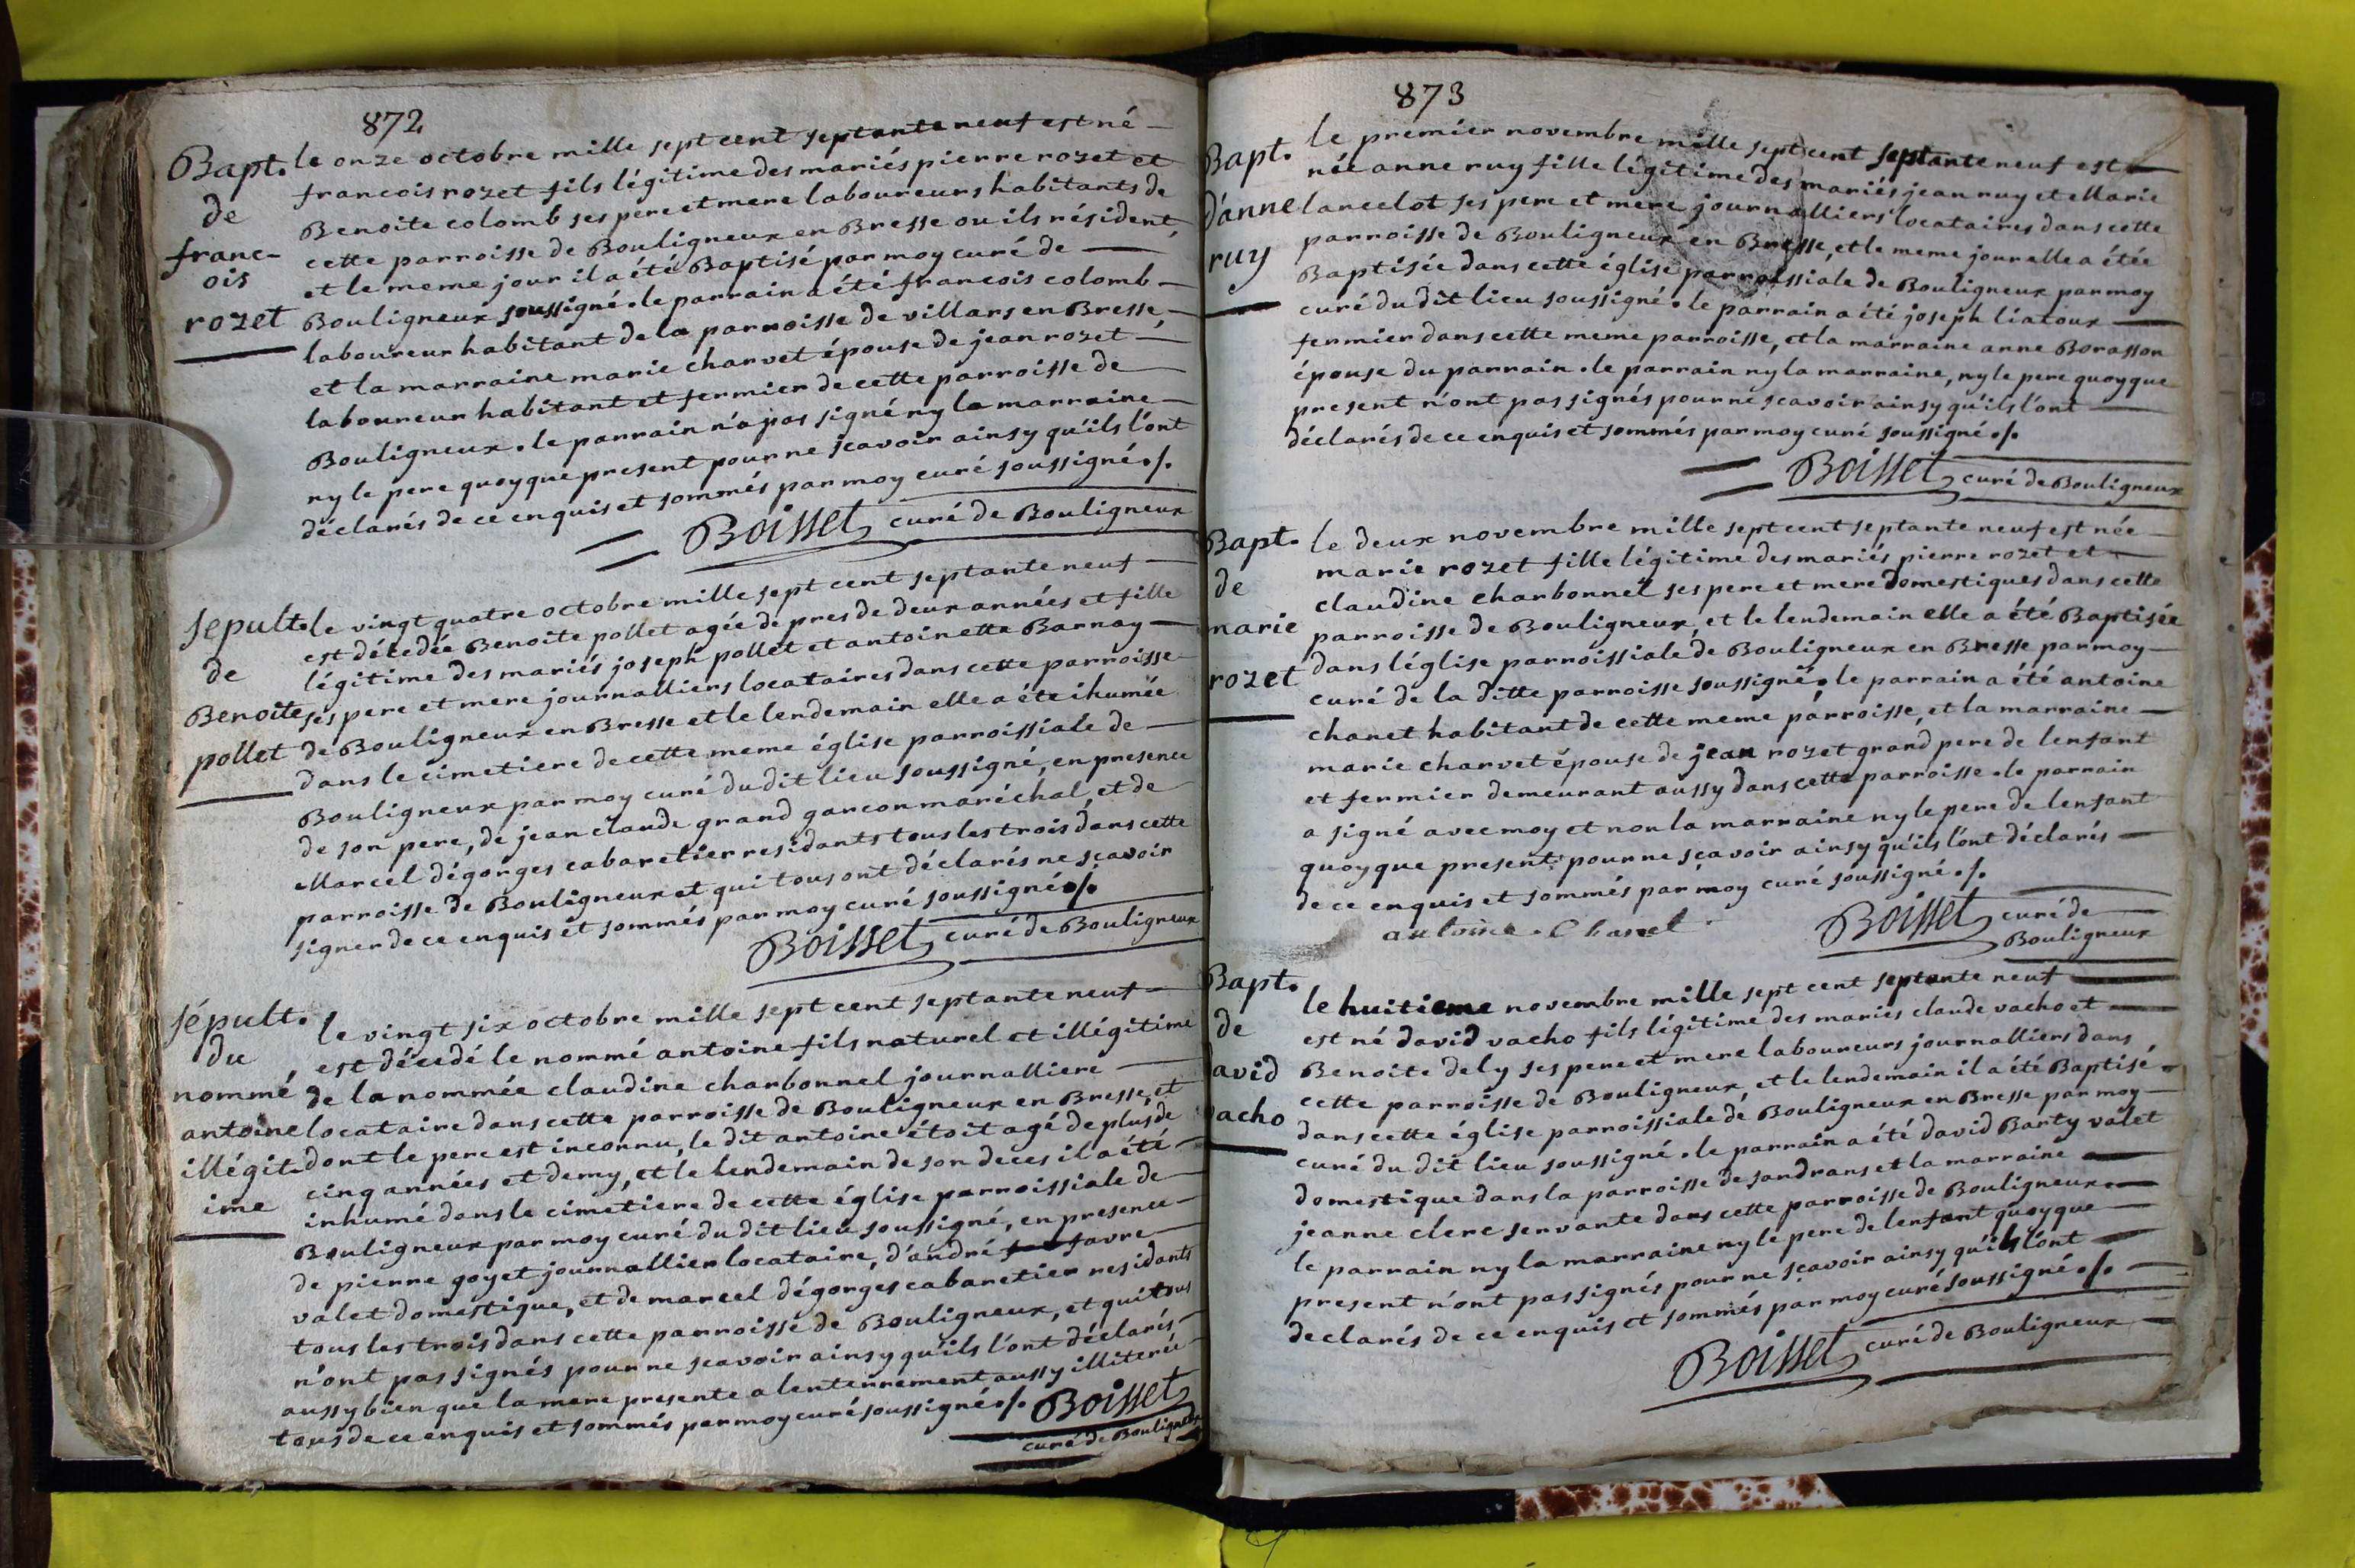 872
Bapt.
de
franc-
ois
rozet
le onze octobre mille sept cent septante neuf est né
francois rozet fils légitime des mariés pierre rozet et
Benoite colomb ses pere et mere laboureurs habitants de
cette parroisse de Bouligneux en Bresse ou ils résident,
et le meme jour il a été Baptisé par moy curé de
Bouligneux soussigné. le parrain a été francois colomb
laboureur habitant de la parroisse de villars en Bresse,
et la marraine marie charvet épouse de jean rozet
laboureur habitant et fermier de cette parroisse de
Bouligneux. le parrain n'a pas signé ny la marraine
ny le pere quoyque present pour ne scavoir ainsy qu'ils l'ont
déclarés de ce enquis et sommés par moy curé soussigné ./.
Boisset curé de Bouligneux
sepult.
de
Benoite
pollet
le vingt quatre octobre mille sept cent septante neuf
est décedée Benoite pollet agée de pres de deux années et fille
légitime des mariés joseph pollet et antoinette Barnay
ses pere et mere journalliers locataires dans cette parroisse
de Bouligneux en Bresse et le lendemain elle a éte ihumée
dans le cimetiere de cette meme église parroissiale de
Bouligneux par moy curé du dit lieu soussigné, en presence
de son pere, de jean claude grand garcon maréchal, et de
Marcel dégorges cabaretier residants tous les trois dans cette
parroisse de Bouligneux et qui tous ont déclarés ne sçavoir
signer de ce enquis et sommés par moy curé soussigné ./.
Boisset curé de Bouligneux
sépult.
du
nommé
antoine
illégit
ime
le vingt six octobre mille sept cent septante neuf
est décedé le nommé antoine fils naturel et illégitime
de la nommée claudine charbonnel journalliere
locataire dans cette parroisse de Bouligneux en Bresse, et
dont le pere est inconnu, le dit antoine étoit agé de plus de
cinq années et demy, et le lendemain de son deces il a été
inhumé dans le cimetiere de cette église parroissiale de
Bouligneux par moy curé du dit lieu soussigné, en presence
de pierre goyet journallier locataire, d'andré favre
valet domestique, et de marcel dégorges cabaretier residants
tous les trois dans cette parroisse de Bouligneux, et qui tous
n'ont pas signés pour ne scavoir ainsy qu'ils l'ont déclarés
aussy bien que la mere presente a lenterrement aussy illiterée
tous de ce enquis et sommés par moy curé soussigné ./. Boisset
curé de Bouligneux
873
Bapt.
d'anne
ruy
le premier novembre mille sept cent septante neuf est
née anne ruy fille légitime des mariés jean ruy et Marie
lancelot ses pere et mere journalliers locataires dans cette
parroisse de Bouligneux en Bresse, et le meme jour elle a étée
Baptisée dans cette église parroissiale de Bouligneux par moy
curé du dit lieu soussigné. le parrain a été joseph liatoux
fermier dans cette meme parroisse, et la marraine anne Borasson
épouse du parrain. le parrain ny la marraine, ny le pere quoyque
present n'ont pas signés pour ne scavoir ainsy qu'ils l'ont
déclarés de ce enquis et sommés par moy curé soussigné ./.
Boisset curé de Bouligneux
Bapt.
de
marie
rozet
le deux novembre mille sept cent septante neuf est née
marie rozet fille légitime des mariés pierre rozet et
claudine charbonnel ses pere et mere domestiques dans cette
parroisse de Bouligneux, et le lendemain elle a été Baptisée
dans léglise parroissiale de Bouligneux en Bresse par moy
curé de la ditte parroisse soussigné. le parrain a été antoine
chanet habitant de cette meme parroisse, et la marraine
marie charvet épouse de jean rozet grand pere de lenfant
et fermier demeurant aussy dans cette parroisse. le parrain
a signé avec moy et non la marraine ny le pere de lenfant
quoyque present pour ne sçavoir ainsy qu'ils l'ont déclarés
de ce enquis et sommés par moy curé soussigné ./.
antoine. Chanel
Boisset curé de
Bouligneux
Bapt.
de
david
vacho
le huitieme novembre mille sept cent septante neuf
est né david vacho fils légitime des mariés claude vacho et
Benoite dely ses pere et mere laboureurs journalliers dans
cette parroisse de Bouligneux, et le lendemain il a été Baptisé
dans cette église parroissiale de Bouligneux en Bresse par moy
curé du dit lieu soussigné. le parrain a été david Barty valet
domestique dans la parroisse de sandrans et la marraine
jeanne clerc servante dans cette parroisse de Bouligneux
le parrain ny la marraine ny le pere de lenfant quoyque
present n'ont pas signés pour ne sçavoir ainsy qu'ils l'ont
declarés de ce enquis et sommés par moy curé soussigné ./.
Boisset curé de Bouligneux